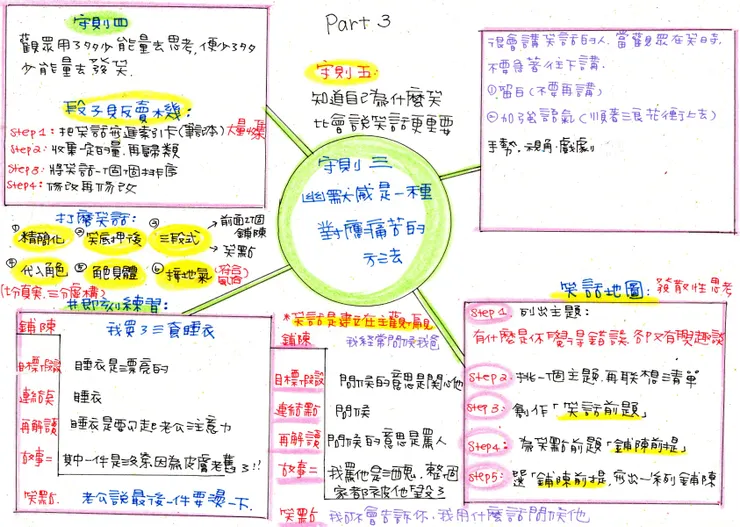 Part 3
守則四
觀眾用399少能量去思考,便少399
少能量去發笑.
段子見反賣木幾:
Step1:把笑話寫進索引卡(筆記本)大量收集
Step2:收集一定的量,再歸類
Step3:將笑話一個個排序
Step4:修改再修改
守則五:
知道自己為什麼笑
比會說笑話更重要
守則三
幽默感是一種
對應痛苦的
方法
很會講笑話的人,當觀眾在笑時,
不要急著往下講.
①留白(不要再講)
②加強語氣(順著浪花衝上去)
手勢.視角.戲劇
打磨笑話:
① 精簡化
② 笑底押後
③ 三段式
前面2個鋪陳
笑點
④ 代入角色
⑤ 角色具體
⑥ 接地氣
(七分真實,三分虛構)
#即刻練習:
鋪陳 我買了三套睡衣
目標假設 睡衣是漂亮的
連結點 睡衣
再解讀 睡衣是要勾起老公注意力
故事二 其中一件是
笑點. 老公說最後一件要燙一下.
*笑話是建立在主觀偏見
鋪陳 我經常問候我爸
目標假設 問候的意思是關心他
連結點 問候
再解讀 問候的意思是罵人
故事二 我罵他是三八醜,整個
家都被他
笑點 我不會告訴你,我用什麼話問候他
笑話地圖:發散性思考
Step1.列出主題:
有什麼是你覺得錯誤,卻又有興趣談
Step2:挑一個主題,再聯想清單
Step3:創作「笑話前題」
Step4:為笑點前題「鋪陳前提」
Step5:選「鋪陳前提,寫出一系列鋪陳